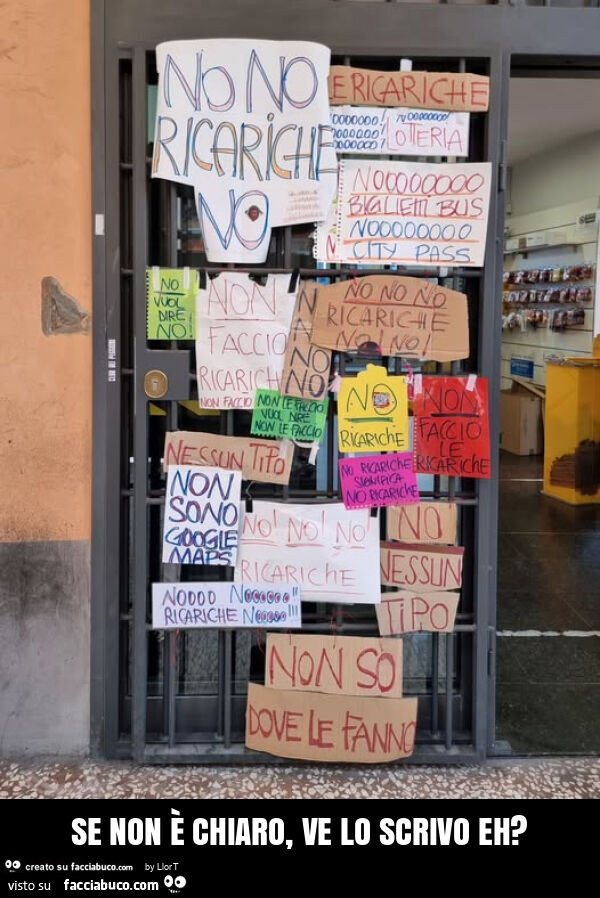 NO NO
RICARICHE
NO
LE RICARICHE
OOOOOOO!
OOOOOOO!
OOOOOO!
NOOOOOOO!
LOTTERIA
NOOOOOOOO
BIGLIETTI BUS
NOOOOOOOO
CITY PASS
NO
VUOL
DIRE
NO!
NON
FACCIO
RICARICH
NON FACCIO
N
NO
NO
NO NO NO
RICARICHE
NO! NO!
NON LE FACCIO
VUOL DIRE
NON LE FACCIO
NO
RICARICHE
NON
FACCIO
LE
RICARICHE
NESSUN TIPO
NO RICARICHE
SIGNIFICA
NO RICARICHE
NON
SONO
GOOGLE
MAPS
NO! NO! NO!
RICARICHE
NO
NESSUN
TIPO
NOOOO NOOOOOO!!
RICARICHE NOOOOO!!!
NON SO
DOVE LE FANNO
SE NON È CHIARO, VE LO SCRIVO EH?
creato su facciabuco.com by LlorT
visto su facciabuco.com